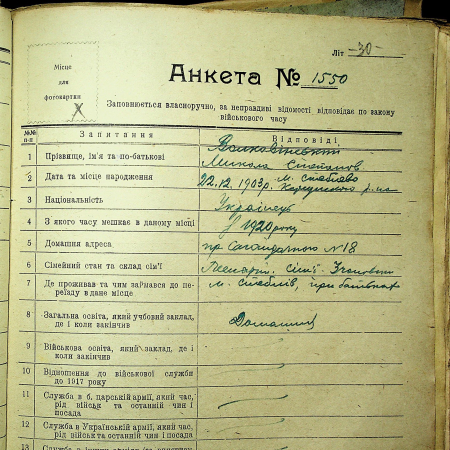 Літ -30-
Місце
для
фотокартки
Анкета № 1550
Заповнюється власноручно, за неправдиві відомості відповідає по закону
військового часу
№№ п-п Запитання Відповіді
1 Прізвище, ім'я та по-батькові
Микола
2 Дата та місце народження 22.12.1903р.
3 Національність Українець
4 З якого часу мешкає в даному місці З 1920 року
5 Домашня адреса пр Сагайдачного N 18
6 Сімейний стан та склад сім'ї
7 Де проживав та чим займався до пе-
реїзду в дане місце
8 Загальна освіта, який учбовий заклад,
де і коли закінчив Домашня
9 Військова освіта, який заклад, де і
коли закінчив
10 Відношення до військової служби
до 1917 року
11 Служба в б. царській армії, який час,
рід військ та останній чин і
посада
12 Служба в Українській армії, який час,
рід військ та останній чин і посада